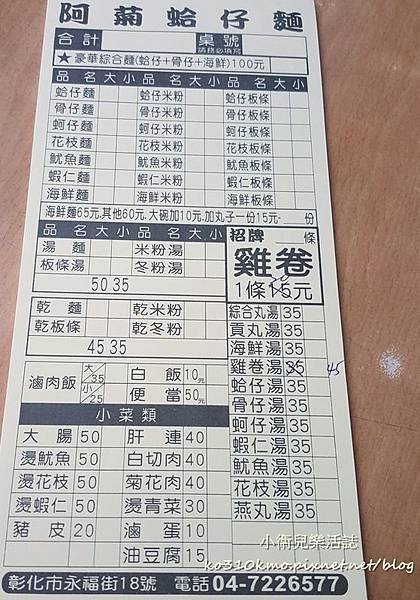 阿菊蛤仔麵
合計 桌號 請務必填寫
★豪華綜合麵(蛤仔+骨仔+海鮮)100元
品名 大 小 品名 大 小 品名 大 小
蛤仔麵 蛤仔米粉 蛤仔板條
骨仔麵 骨仔米粉 骨仔板條
蚵仔麵 蚵仔米粉 蚵仔板條
花枝麵 花枝米粉 花枝板條
魷魚麵 魷魚米粉 魷魚板條
蝦仁麵 蝦仁米粉 蝦仁板條
海鮮麵 海鮮米粉 海鮮板條
海鮮麵65元,其他60元,大碗加10元,加丸子一份15元- 份
品名 大 小 品名 大 小
湯麵 米粉湯
板條湯 冬粉湯
50 35
乾麵 乾米粉
乾板條 乾冬粉
45 35
滷肉飯 大/35 小/25 白飯 10元
便當 50元
小菜類
大腸 50 肝連 40
燙魷魚 50 白切肉 40
燙花枝 50 菊花肉 40
燙蝦仁 50 燙青菜 30
豬皮 20 滷蛋 10
油豆腐 15
招牌 條
雞卷
1條15元
綜合丸湯 35
貢丸湯 35
海鮮湯 35
雞卷湯 35 45
蛤仔湯 35
骨仔湯 35
蚵仔湯 35
蝦仁湯 35
魷魚湯 35
花枝湯 35
燕丸湯 35
小衛兒樂活誌
ko310kmo.pixnet.net/blog
彰化市永福街18號 電話 04-7226577